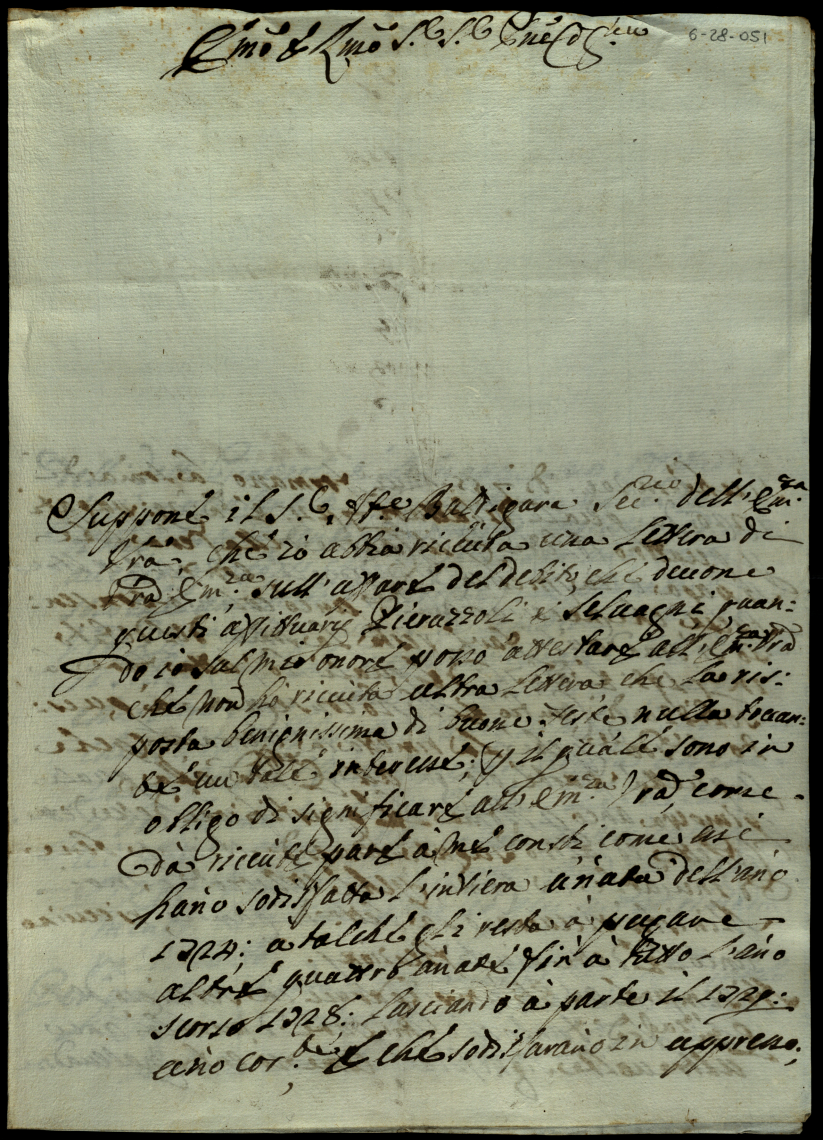 6-28-051
Emō e Rmō S.r S.r Pne
Suppone il S.r Baldigara Sec.rio dell'Em.za
Vrā, che io abbia riceuta una lettera di
Vrā Em.za sull'affare del debito, che deuono
questi affittuarÿ Pierazzoli e Seluagni, quan:
do io sal mio onore posso attestare all'Em.za Vrā
che non hò riceuta altra lettera che la ris:
posta benignissima di buone feste nulla toccan:
te un tale interesse; p il quale sono in
obligo di significare all'Em.za Vrā, come
dà riceute pare à me consti come assi
hano sodisfatta l'intiera anāta dell'año
1724; a talche gli resta à pagare
altre quattro anāte fin à tutto l'año
scorso 1728; lasciando à parte il 1729:
año cor.te e che sodisfarano in appresso;